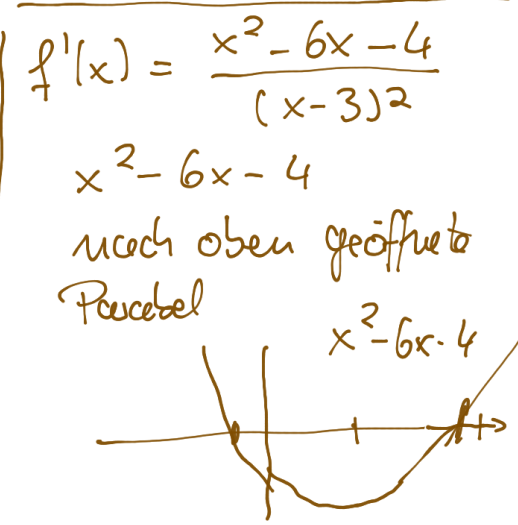 f'(x) = (x² - 6x - 4) / (x-3)²
x² - 6x - 4
nach oben geöffnete
Parabel
x² - 6x - 4